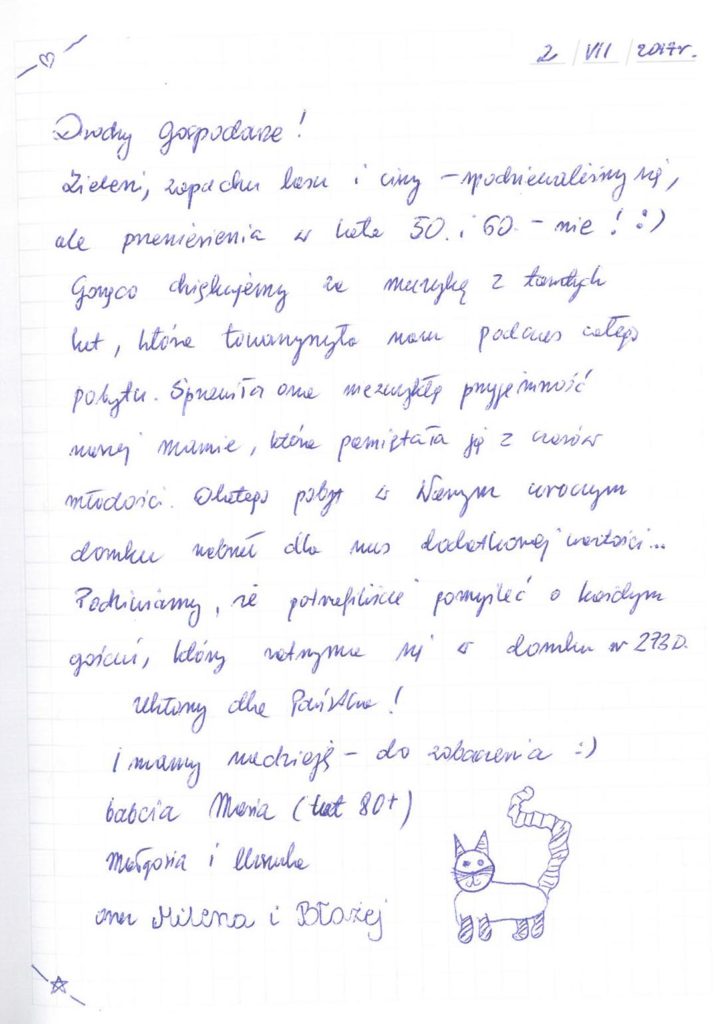 2 / VII / 2017r.
Drodzy Gospodarze!
Zieleni, zapachu lasu i ciszy – spodziewaliśmy się,
ale przeniesienia w lata 50. i 60. – nie! :)
Gorąco dziękujemy za muzykę z tamtych
lat, która towarzyszyła nam podczas całego
pobytu. Sprawiła ona niezwykłą przyjemność
naszej mamie, która pamiętała ją z czasów
młodości. Dlatego pobyt w Waszym uroczym
domku nabrał dla nas dodatkowej wartości...
Podziwiamy, że potrafiliście pomyśleć o każdym
gościu, który zatrzyma się w domku nr 273D.
Ukłony dla Państwa!
I mamy nadzieję – do zobaczenia :)
babcia Maria (lat 80+)
Małgosia i Urszula
oraz Milena i Błażej